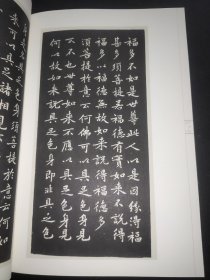 福多不如是世尊此人以是因緣得福
甚多須菩提若福德有實如來不說得
福德多以福德無故如來說得福德多
須菩提於意云何佛可以具足色身見
不不也世尊如來不應以具足色身見
何以故如來說具足色身即非具足色
具足色身須菩提於意云何如
來可以具足諸相見